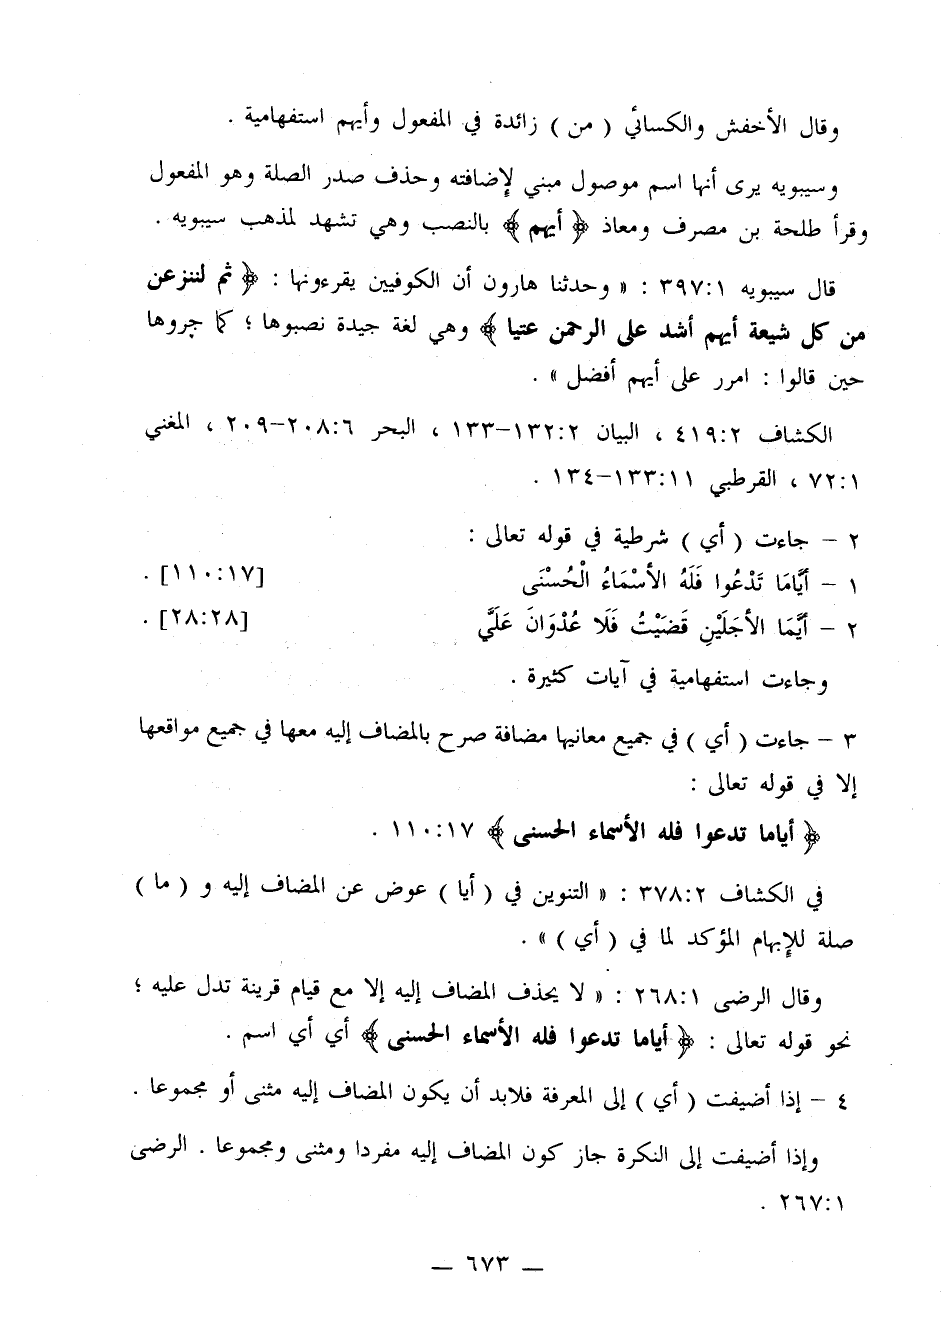 وقال الأخفش والكسائي ( من ) زائدة في المفعول وأيهم استفهامية .
وسيبويه يرى أنها اسم موصول مبني لإضافته وحذف صدر الصلة وهو المفعول
وقرأ طلحة بن مصرف ومعاذ ﴿ أيهم ﴾ بالنصب وهي تشهد لمذهب سيبويه .
قال سيبويه ٣٩٧:١ : « وحدثنا هارون أن الكوفيين يقرءونها : ﴿ ثم لننزعن
من كل شيعة أيهم أشد على الرحمن عتيا ﴾ وهي لغة جيدة نصبوها ؛ كما جروها
حين قالوا : امرر على أيهم أفضل » .
الكشاف ٤١٩:٢ ، البيان ١٣٢:٢–١٣٣ ، البحر ٢٠٨:٦–٢٠٩ ، المغني
٧٢:١ ، القرطبي ١٣٣:١١–١٣٤ .
٢ – جاءت ( أي ) شرطية في قوله تعالى :
١ – أَيَّامَا تَدْعُوا فَلَهُ الأَسْمَاءُ الْحُسْنَى [١١٠:١٧] .
٢ – أَيَّمَا الأَجَلَيْنِ قَضَيْتُ فَلَا عُدْوَانَ عَلَيَّ [٢٨:٢٨] .
وجاءت استفهامية في آيات كثيرة .
٣ – جاءت ( أي ) في جميع معانيها مضافة صرح بالمضاف إليه معها في جميع مواقعها
إلا في قوله تعالى :
﴿ أياما تدعوا فله الأسماء الحسنى ﴾ ١١٠:١٧ .
في الكشاف ٣٧٨:٢ : « التنوين في ( أيا ) عوض عن المضاف إليه و ( ما )
صلة للإبهام المؤكد لما في ( أي ) » .
وقال الرضى ٢٦٨:١ : « لا يحذف المضاف إليه إلا مع قيام قرينة تدل عليه ؛
نحو قوله تعالى : ﴿ أياما تدعوا فله الأسماء الحسنى ﴾ أي أي اسم .
٤ – إذا أضيفت ( أي ) إلى المعرفة فلابد أن يكون المضاف إليه مثنى أو مجموعا .
وإذا أضيفت إلى النكرة جاز كون المضاف إليه مفردا ومثنى ومجموعا . الرضى
٢٦٧:١ .
— ٦٧٣ —